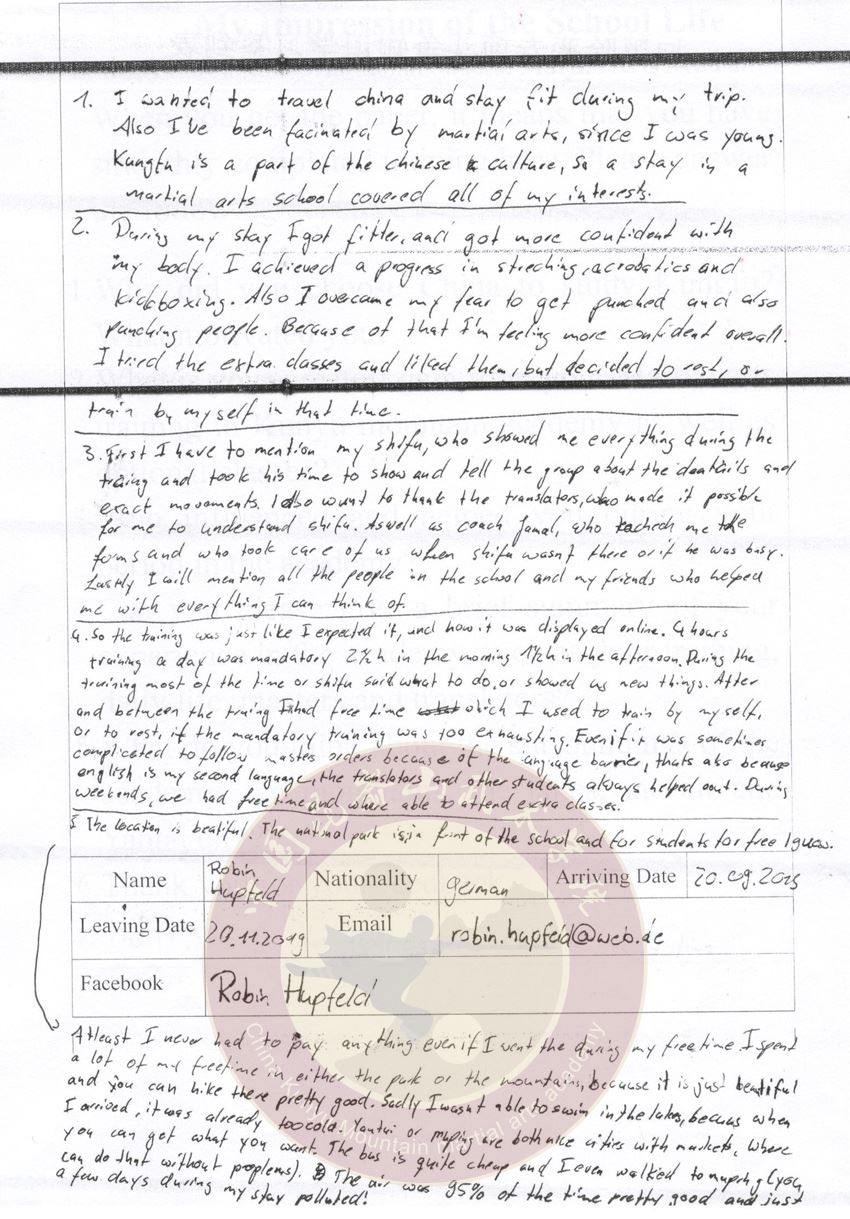 My Impression of the School Life
1. I wanted to travel china and stay fit during my trip.
Also I've been facinated by martial arts, since I was young.
Kungfu is a part of the chinese culture, so a stay in a
martial arts school covered all of my interests.
2. During my stay I got fitter, and got more confident with
my body. I achieved a progress in streching, acrobatics and
kickboxing. Also I overcame my fear to get punched and also
punching people. Because of that I'm feeling more confident overall.
I tried the extra classes and liked them, but decided to rest, or
train by myself in that time.
3. First I have to mention my shifu, who showed me everything during the
traing and took his time to show and tell the group about the deatails and
exact movements. I also want to thank the translators, who made it possible
for me to understand shifu. Aswell as coach Jamal, who me the
forms and who took care of us when shifu wasn't there or if he was busy.
Lastly I will mention all the people in the school and my friends who helped
me with everything I can think of.
4. So the training was just like I expected it, and how it was displayed online. 4 hours
training a day was mandatory 2½h in the morning 1½h in the afternoon. During the
training most of the time or shifu said what to do, or showed us new things. After
and between the traing I had free time which I used to train by myself,
or to rest, if the mandatory training was too exhausting. Even if it was sometimes
complicated to follow masters orders because of the language barrier, thats also because
english is my second language, the translators and other students always helped out. During
weekends, we had freetime and where able to attend extra classes.
5 The location is beatiful. The national park is in front of the school and for students for free I guess.
Name Robin Hupfeld Nationality german Arriving Date 20.09.2019
Leaving Date 20.11.2019 Email robin.hupfeld@web.de
Facebook Robin Hupfeld
Atleast I never had to pay anything even if I went the during my freetime. I spent
a lot of my freetime in either the park or the mountains, because it is just beautiful
and you can hike there pretty good. Sadly I wasnt able to swim in the lakes, becaus when
I arrived, it was already too cold. Yantai or muping are both nice cities with markets, where
you can get what you want. The bus is quite cheap and I even walked to muping (you
can do that without proplems). The air was 95% of the time pretty good and just
a few days during my stay polluted!
China Kunyu Mountain martial arts academy